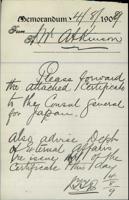 Memorandum. 14/8/1909
From
Mr Atkinson
Please forward
the attached Certificate
to the Consul General
for Japan.
Also advise Dept
of External Affairs
re issue of the
Certificate this day
14
8
9